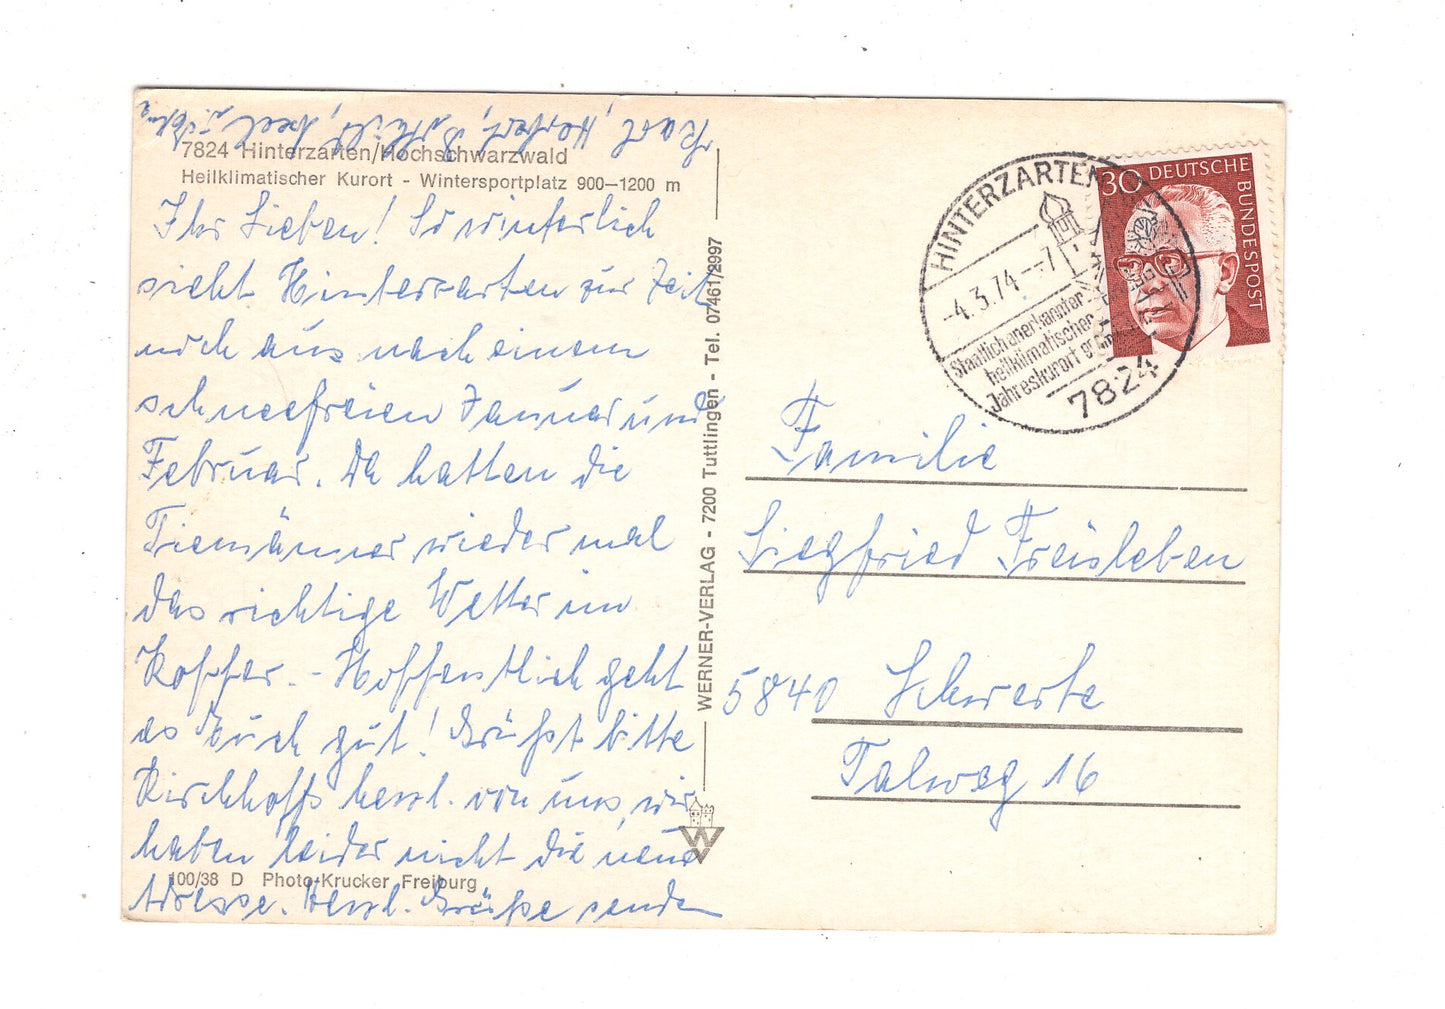 7824 Hinterzarten/Hochschwarzwald
Heilklimatischer Kurort - Wintersportplatz 900—1200 m
Ihr Lieben! So winterlich
sieht Hinterzarten zur Zeit
noch aus nach einem
schneefreien Januar und
Februar. Da hatten die
Tiemänner wieder mal
das richtige Wetter im
Koffer. - Hoffentlich geht
es Euch gut! Grüßt bitte
Kirchhoffs herzl. von uns, wir
haben leider nicht die neue
Adresse. Herzl. Grüße senden
Karl, Herbert,
100/38 D Photo-Krucker Freiburg
WERNER-VERLAG - 7200 Tuttlingen - Tel. 07461/2997
W
HINTERZARTEN
-4.3.74.--7
Staatlich anerkannter
heilklimatischer
Jahreskurort
7824
30 DEUTSCHE
BUNDESPOST
Familie
Siegfried Freisleben
5840 Schwerte
Talweg 16